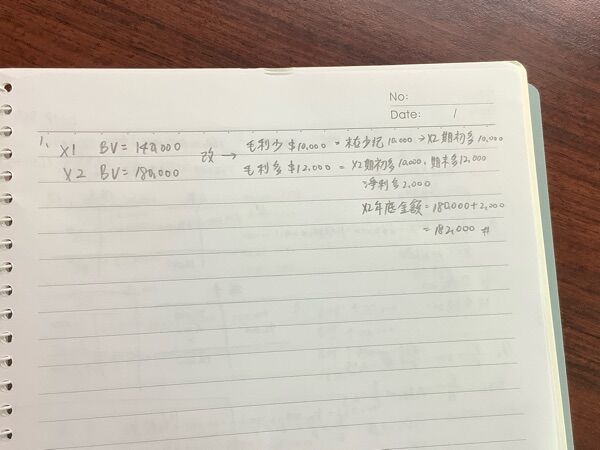 No:
Date: /
1. X1 BV = 140,000 改 → 毛利少 $10,000 = 存少记 10,000 → X2 期初多 10,000
X2 BV = 180,000 毛利多 $12,000 = X2 期初多 10,000, 期末多 12,000
净利多 2,000
X2年底金额 = 180,000 + 2,000
= 182,000 #